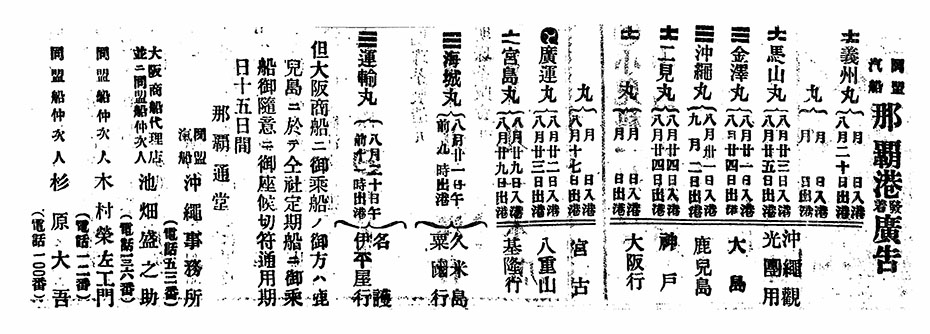 同盟汽船 那覇港發着廣告
義州丸 八月二十日入港 沖繩觀光團用
丸 月 日入港 月 日出港
馬山丸 八月廿三日入港 八月廿五日出港
金澤丸 八月廿一日入港 八月廿四日出港 大島
沖繩丸 八月卅一日入港 九月二日出港 鹿兒島
二見丸 八月廿四日入港 八月廿四日出港 神戸
丸 月 日入港 月 日出港 大阪行
丸 月 日入港 八月十七日出港 宮古
廣運丸 八月廿二日入港 八月廿三日出港 八重山
宮島丸 八月廿九日入港 八月廿九日出港 基隆行
海城丸 八月廿一日午前九時出港 久米島 粟國行
運輸丸 八月二十日午前十一時出港 名護 伊平屋行
但大阪商船ニ御乘船ノ御方ハ鹿
兒島ニ於テ全社定期船ニ御乘
船御隨意ニ御座候切符通用期
日十五日間
那覇通堂
同盟汽船 沖繩事務所
(電話五三番)
大阪商船代理店並ニ同盟船仲次人 池畑盛之助
(電話一三六番)
同盟船仲次人 木村榮左工門
(電話一二番)
同盟船仲次人 杉原大吾
(電話一〇〇番)